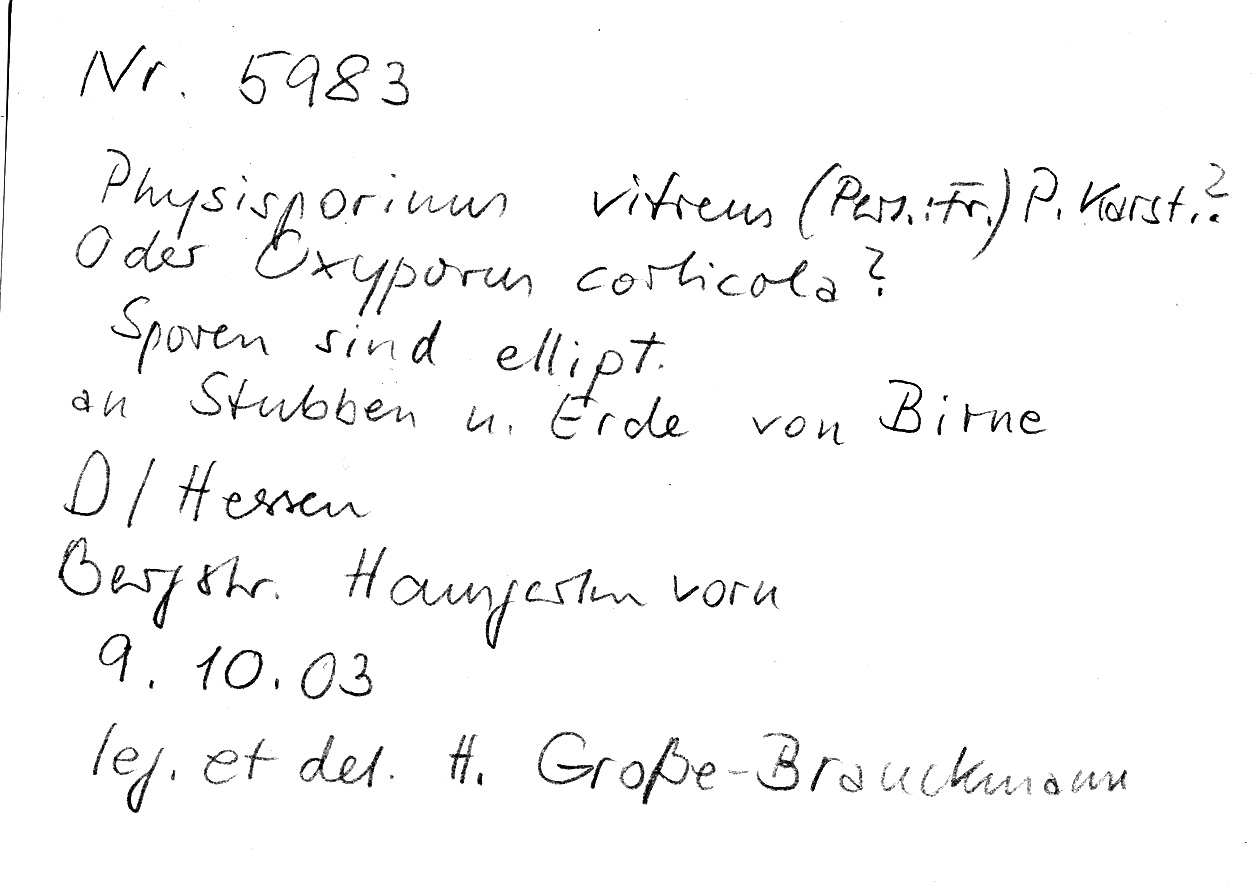 Nr. 5983
Physisporinus vitreus (Pers.:Fr.) P. Karst.?
Oder Oxyporus corticola?
Sporen sind ellipt.
an Stubben u. Erde von Birne
D/Hessen
Bergstr. Hausgarten vorn
9.10.03
leg. et det. H. Große-Brauckmann